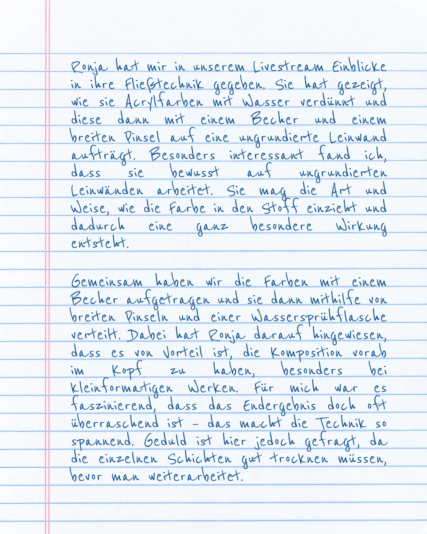 Ronja hat mir in unserem Livestream Einblicke
in ihre Fließtechnik gegeben. Sie hat gezeigt,
wie sie Acrylfarben mit Wasser verdünnt und
diese dann mit einem Becher und einem
breiten Pinsel auf eine ungrundierte Leinwand
aufträgt. Besonders interessant fand ich,
dass sie bewusst auf ungrundierten
Leinwänden arbeitet. Sie mag die Art und
Weise, wie die Farbe in den Stoff einzieht und
dadurch eine ganz besondere Wirkung
entsteht.
Gemeinsam haben wir die Farben mit einem
Becher aufgetragen und sie dann mithilfe von
breiten Pinseln und einer Wassersprühflasche
verteilt. Dabei hat Ronja darauf hingewiesen,
dass es von Vorteil ist, die Komposition vorab
im Kopf zu haben, besonders bei
kleinformatigen Werken. Für mich war es
faszinierend, dass das Endergebnis doch oft
überraschend ist – das macht die Technik so
spannend. Geduld ist hier jedoch gefragt, da
die einzelnen Schichten gut trocknen müssen,
bevor man weiterarbeitet.